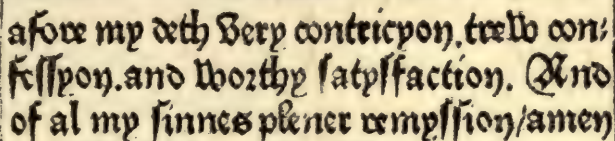 afore my deth very contricyon, trew con⸗
fessyon. and worthy satysfaction. And
of al my sinnes plener remyssion/amen